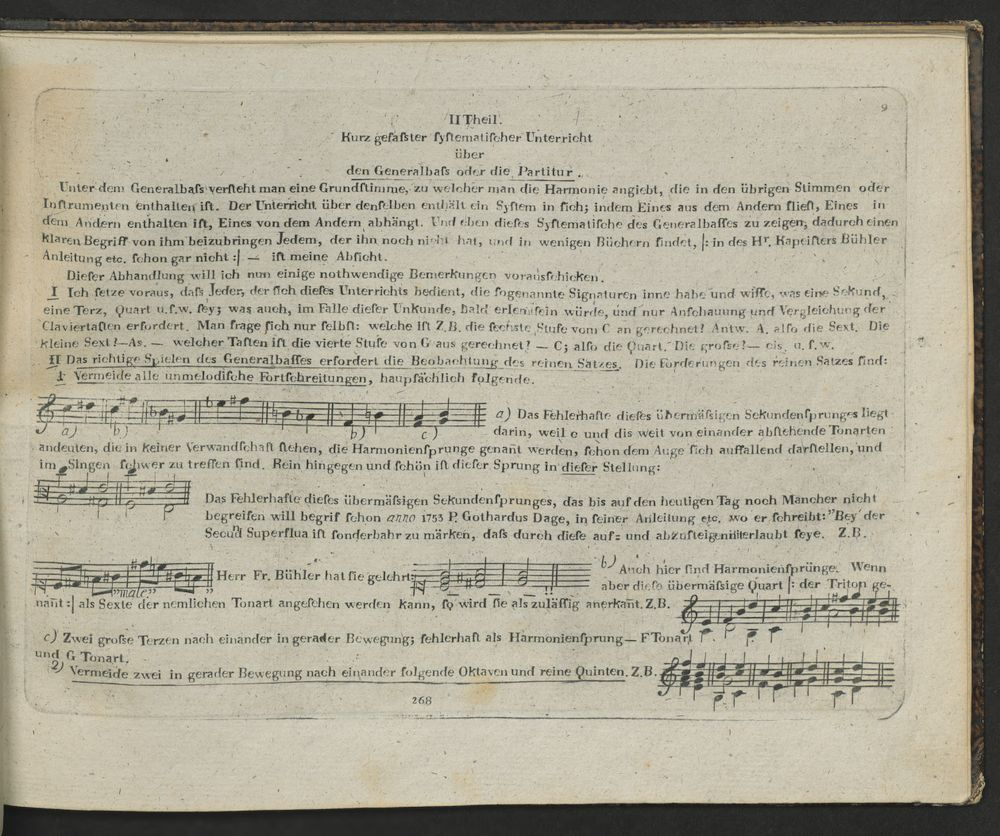 9
II Theil.
Kurz gefaſster ſyſtematiſcher Unterricht
über
den Generalbaſs oder die Partitur.
Unter dem Generalbaſs verſteht man eine Grundſtimme, zu welcher man die Harmonie angiebt, die in den übrigen Stimmen oder
Inſtrumenten enthalten iſt. Der Unterricht über denſelben enthält ein Syſtem in ſich; indem Eines aus dem Andern flieſt, Eines in
dem Andern enthalten iſt, Eines von dem Andern abhängt. Und eben dieſes Syſtematiſche des Generalbaſſes zu zeigen, dadurch einen
klaren Begriff von ihm beizubringen Jedem, der ihn noch nicht hat, und in wenigen Büchern findet, |: in des Hr. Kapeiſters Bühler
Anleitung etc. ſchon gar nicht :| — iſt meine Abſicht.
Dieſer Abhandlung will ich nun einige nothwendige Bemerkungen vorausſchicken.
I Ich ſetze voraus, daſs Jeder, der ſich dieſes Unterrichts bedient, die ſogenannte Signaturen inne habe und wiſſe, was eine Sekund,
eine Terz, Quart u.ſ.w. ſey; was auch, im Falle dieſer Unkunde, bald erlernt ſein würde, und nur Anſchauung und Vergleichung der
Claviertaſten erfordert. Man frage ſich nur ſelbſt: welche iſt Z.B. die ſechste Stufe vom C an gerechnet? Antw. A. alſo die Sext. Die
kleine Sext?—As. — welcher Taſten iſt die vierte Stufe von G aus gerechnet? — C; alſo die Quart. Die groſse?— cis. u. ſ. w.
II Das richtige Spielen des Generalbaſſes erfordert die Beobachtung des reinen Satzes. Die Forderungen des reinen Satzes ſind:
1 Vermeide alle unmelodiſche Fortſchreitungen, haupſächlich folgende.
a) b) b) c)
a) Das Fehlerhafte dieſes übermäſsigen Sekundenſprunges liegt
darin, weil c und dis weit von einander abſtehende Tonarten
andeuten, die in keiner Verwandſchaft ſtehen, die Harmonienſprunge genañt werden, ſchon dem Auge ſich auffallend darſtellen, und
im Singen ſchwer zu treffen ſind. Rein hingegen und ſchön iſt dieſer Sprung in dieſer Stellung:
Das Fehlerhafte dieſes übermäſsigen Sekundenſprunges, das bis auf den heutigen Tag noch Mancher nicht
begreifen will begrif ſchon anno 1753 P. Gothardus Dage, in ſeiner Anleitung etc. wo er ſchreibt: "Bey der
Secud Superflua iſt ſonderbahr zu märken, daſs durch dieſe auf= und abzuſteigen erlaubt ſeye. Z.B.
"male"
Herr Fr. Bühler hat ſie gelehrt:
b) Auch hier ſind Harmonienſprünge. Wenn
aber dieſe übermäſsige Quart |: der Triton ge-
nañt :| als Sexte der nemlichen Tonart angeſehen werden kann, ſo wird ſie als zuläſſig anerkañt. Z.B.
c) Zwei groſse Terzen nach einander in gerader Bewegung; fehlerhaft als Harmonienſprung— F Tonart
und G Tonart.
2) Vermeide zwei in gerader Bewegung nach einander folgende Oktaven und reine Quinten. Z.B.
268